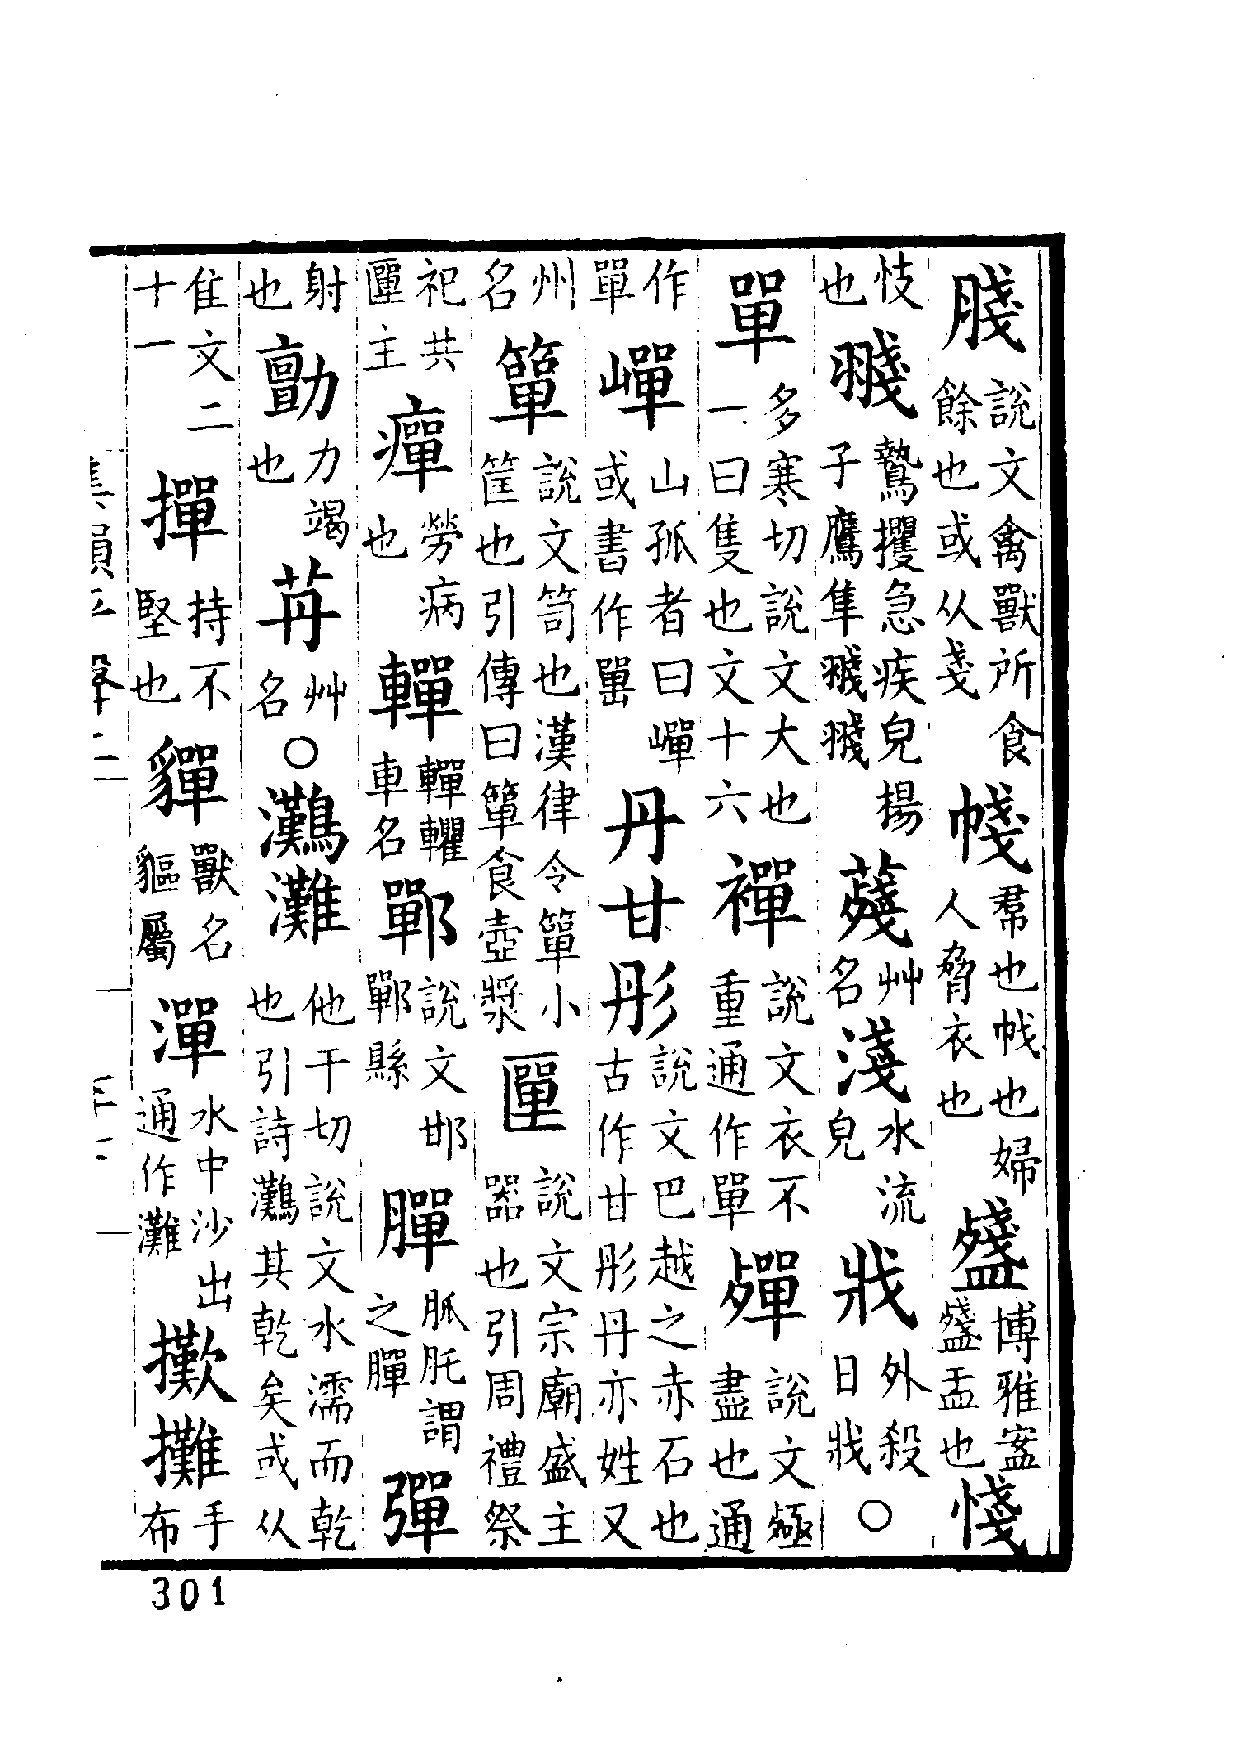 䏼說文禽獸所食餘也或从戔帴帬也帗也婦人脅衣也博雅案盂也
忮也鷙攫急疾皃揚子鷹隼艸名淺水流皃戕外殺曰戕○
單多寒切說文大也一曰隻也文十六襌說文衣不重通作單殫說文極盡也通
作單嘽山孤者曰或書作丹甘彤說文巴越之赤石也古作甘彤丹亦姓又
州名簞說文笥也漢律令簞小筐也引傳曰簞食壺漿匰說文宗廟盛主器也引周禮祭
祀共匰主癉勞病也車名鄲說文邯鄲縣謂之彈
射也勯力竭也苒艸名○灘他干切說文水濡而乾也引詩灘其乾矣或从
隹文二十一撣持不堅也貚獸名貙屬潬水中沙出通作灘攤手布
301